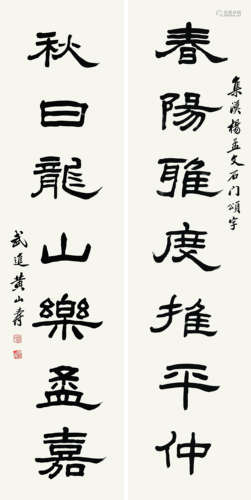 春陽雅度推平仲
集漢楊孟文石门頌字
秋日龍山樂孟嘉
武進黄山壽